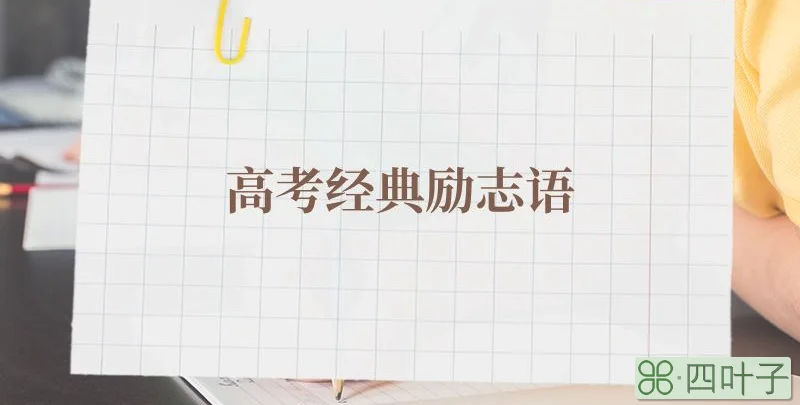 高考经典励志语
四叶子